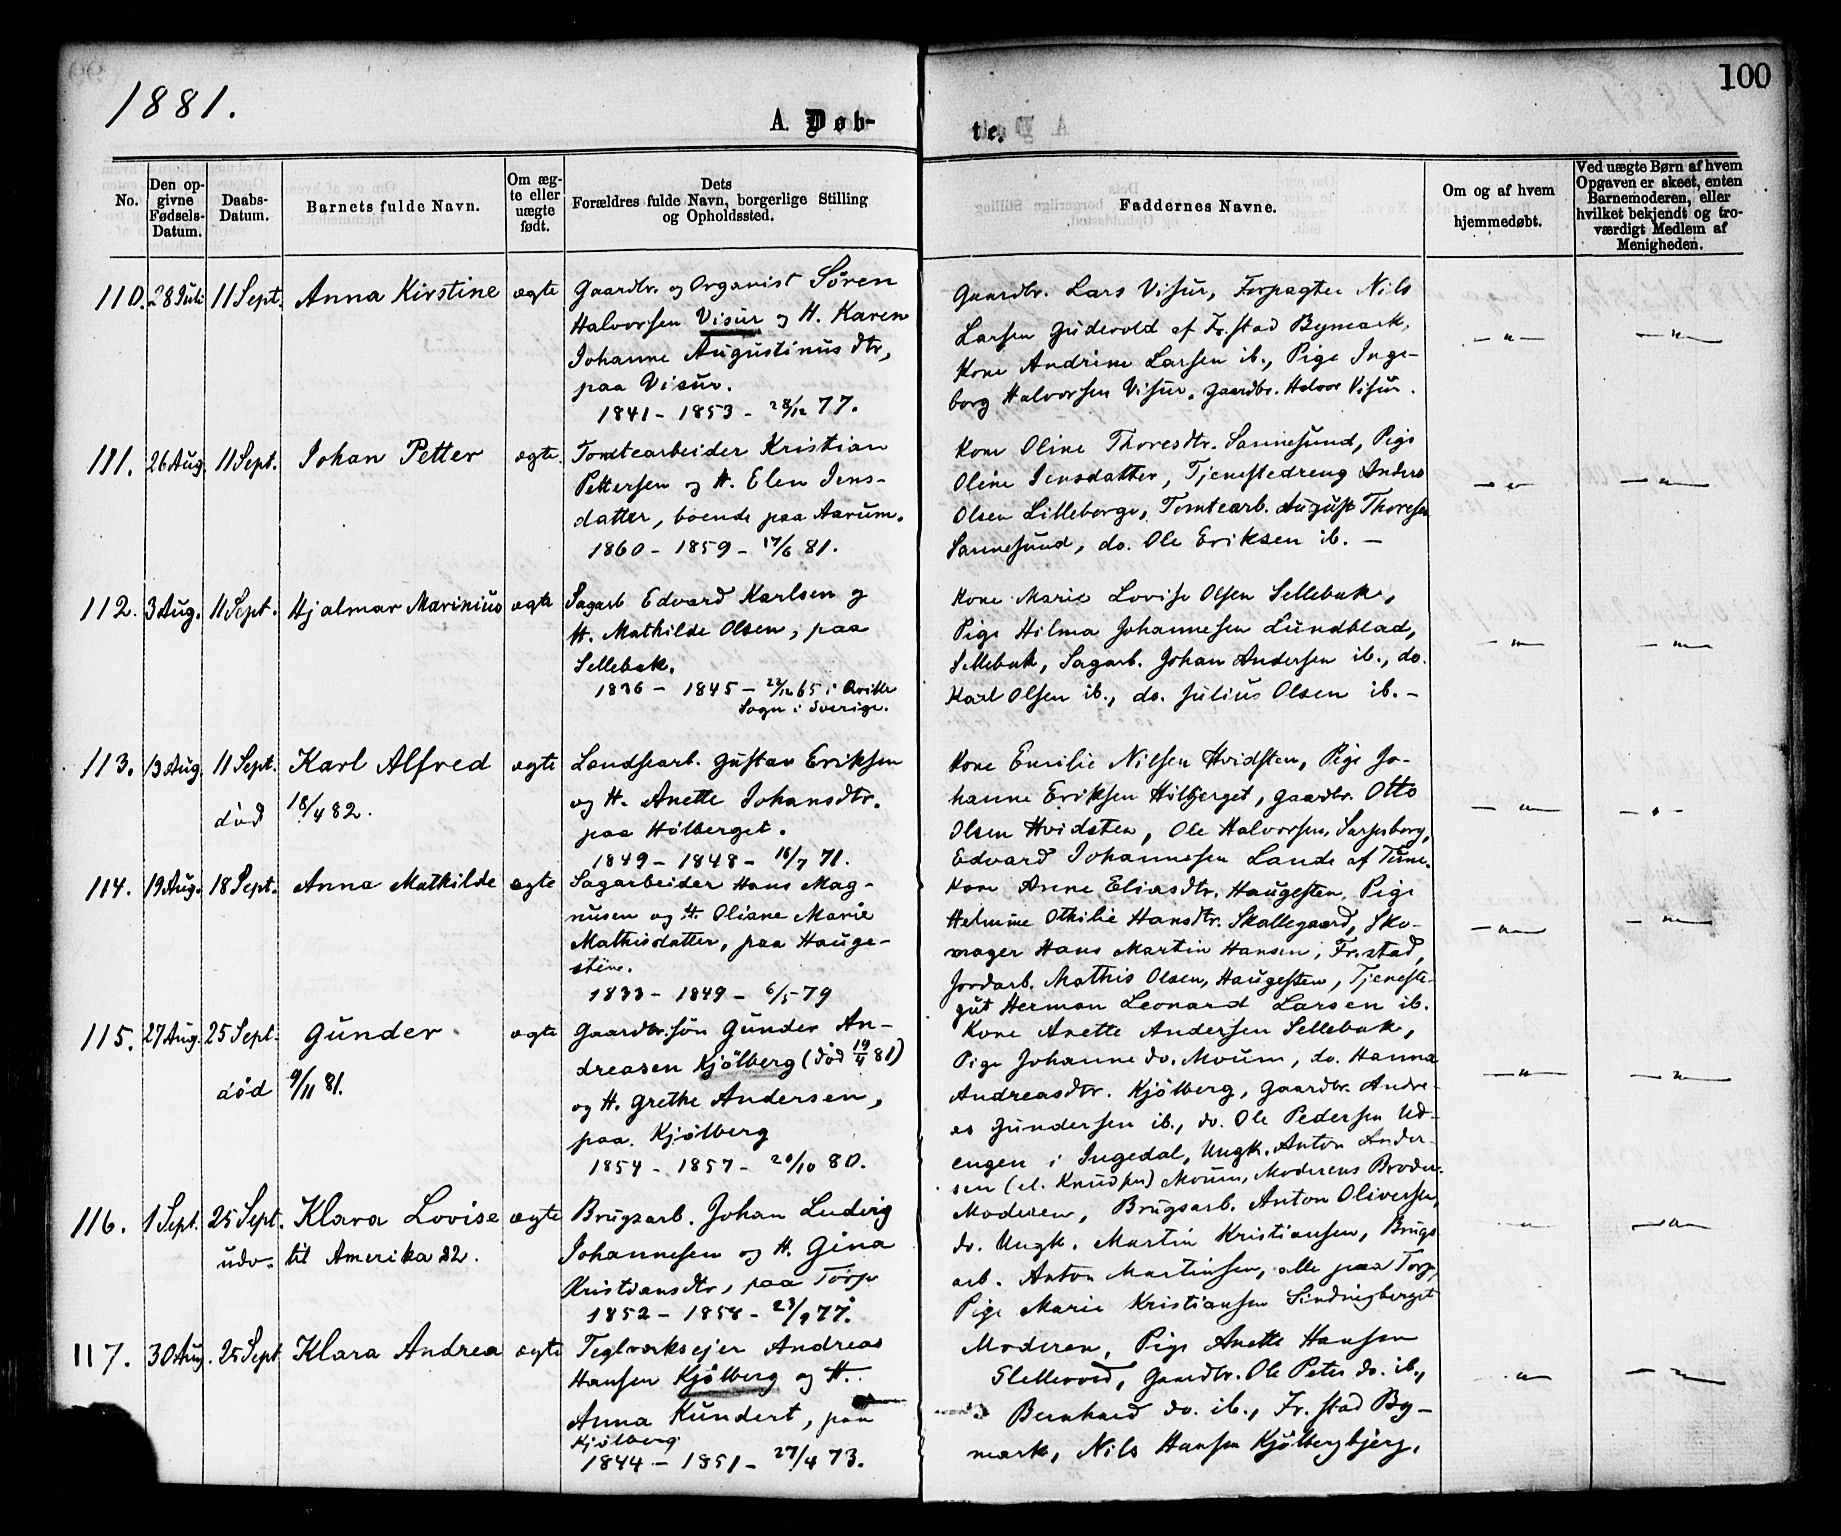 1881.
100
A. Døb-
te.
No.
Den op-
givne
Fødsels-
Datum.
Daabs-
Datum.
Barnets fulde Navn.
Om æg-
te eller
uægte
født.
Dets
Forældres fulde Navn, borgerlige Stilling
og Opholdssted.
Faddernes Navne.
Om og af hvem
hjemmedøbt.
Ved uægte Børn af hvem
Opgaven er skeet, enten
Barnemoderen, eller
hvilket bekjendt og tro-
værdigt Medlem af
Menigheden.
110. 28 Juli 11 Sept. Anna Kirstine ægte
Gaardbr. og Organist Søren
Halvorsen Visur og H. Karen
Johanne Augustinusdtr,
paa Visur.
1841 - 1853 - 28/12 77.
Gaardbr. Lars Visur, Forpagter Nils
Larsen Gudevold af Fr.stad Bymark,
Kone Andrine Larsen ib., Pige Inge-
borg Halvorsen Visur, Gaardbr. Halvor Visur.
— " —
— " —
111. 26 Aug. 11 Sept. Johan Petter ægte.
Tomtearbeider Kristian
Pettersen og H. Elen Jens-
datter, boende paa Aarum.
1860 - 1859 - 17/6 81.
Kone Oline Thoresdtr. Sannesund, Pige
Oline Jensdatter, Tjenestedreng Anders
Olsen Lilleborge, Tomtearb. August Thoresen
Sannesund, do. Ole Eriksen ib. —
— " —
— " —
112. 3 Aug. 11 Sept. Hjalmar Marinius ægte
Sagarb. Edvard Karlsen og
H. Mathilde Olsen, paa
Sellebak.
1836 - 1845 - 22/12 65 i
Sogn i Sverige.
Kone Marie Lovise Olsen Sellebak,
Pige Hilma Johannesen Lundblad,
Sellebak, Sagarb. Johan Andersen ib., do.
Karl Olsen ib., do. Julius Olsen ib. -
— " —
— " —
113. 13 Aug. 11 Sept. Karl Alfred ægte
død 18/4 82.
Landsearb. Gustav Eriksen
og H. Anette Johansdtr.
paa Hølberget.
1849 - 1848 - 16/7 71.
Kone Emilie Nilsen Hvidsten, Pige Jo-
hanne Eriksen Hølberget, Gaardbr. Otto
Olsen Hvidsten, Ole Halvorsen, Sarpsborg,
Edvard Johannesen Lande af Tune.
— " —
— " —
114. 19 Aug. 18 Sept. Anna Mathilde ægte
Sagarbeider Hans Mag-
nusen og H. Oliane Marie
Mathisdatter, paa Hauge-
sten.
1833 - 1849 - 6/5 79
Kone Anne Eliasdtr. Haugesten, Pige
Helmine Othilie Hansdtr. Skallegaard, Sko-
mager Hans Martin Hansen, Fr.stad,
Jordarb. Mathis Olsen, Haugesten, Tjeneste-
gut Herman Leonard Larsen ib.
— " —
— " —
115. 27 Aug. 25 Sept. Gunder ægte
død 9/11 81.
Gaardbr.søn Gunder An-
dreasen Kjølberg (død 19/4 81)
og H. Grethe Andersen,
paa Kjølberg
1854 - 1857 - 20/10 80.
Kone Anette Andersen Sellebak,
Pige Johanne do. Moum, do. Hanna
Andreasdtr. Kjølberg, Gaardbr. Andre-
as Gundersen ib., do. Ole Pedersen Ud-
engen i Ingedal, Ungk. Anton Ander-
sen (el. Knudsen) Moum, Moderens Broder.
— " —
— " —
116. 1 Sept. 25 Sept. Klara Lovise ægte
udv. til Amerika 82.
Brugsarb. Johan Ludvig
Johannesen og H. Gina
Kristiansdtr, paa Torp
1852 - 1858 - 23/9 77.
Moderen, Brugsarb. Anton Oliversen,
do. Ungk. Martin Kristiansen, Brugs
arb. Anton Martinsen, alle paa Torp,
Pige Marie Kristiansen Sindningberget
— " —
— " —
117. 30 Aug. 25 Sept. Klara Andrea ægte
Teglværksejer Andreas
Hansen Kjølberg og H.
Anna Kundert, paa
Kjølberg
1844 - 1851 - 27/4 73.
Moderen, Pige Anette Hansen
Slettevold, Gaardbr. Ole Peter do. ib.,
Bernhard do. ib., Fr.stad By-
mark, Nils Hansen Kjølbergbjerg.
— " —
— " —